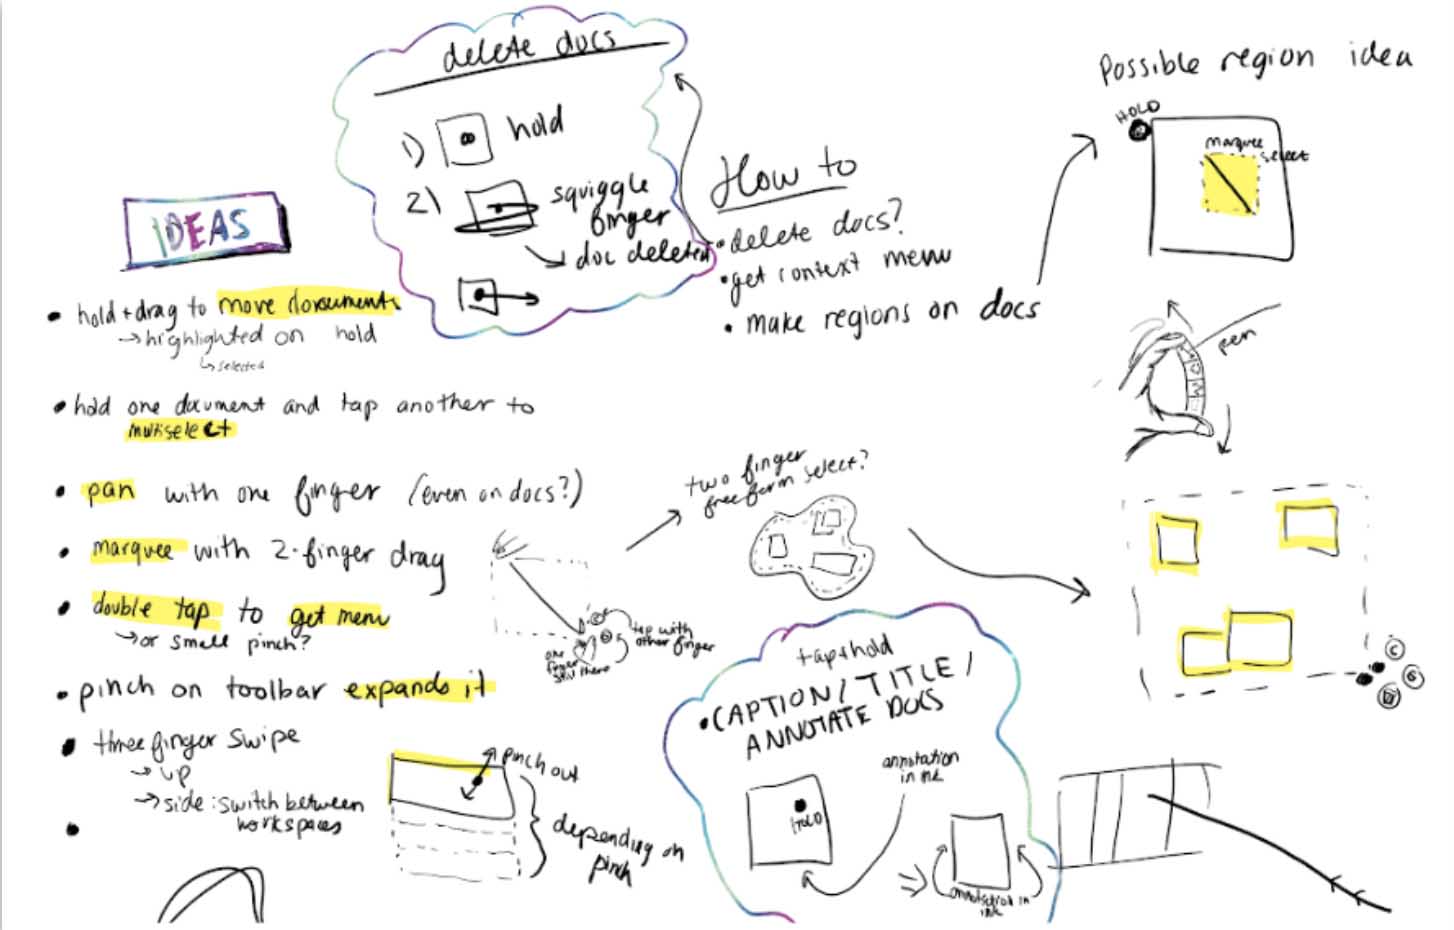 delete docs
1) hold
2) squiggle
finger
→ doc deleted
IDEAS
• hold + drag to move documents
→ highlighted on hold
↳ selected
• hold one document and tap another to
multiselect
• pan with one finger (even on docs?)
• marquee with 2-finger drag
• double tap to get menu
→ or small pinch?
• pinch on toolbar expands it
• three finger swipe
→ up
→ side: switch between
workspaces
•
How to
• delete docs?
• get context menu
• make regions on docs
Possible region idea
HOLD
marquee
select
pen
two finger
freeform select?
one
finger
still there
tap with
other finger
pinch out
depending on
pinch
tap+hold
• CAPTION/TITLE/
ANNOTATE DOCS
HOLD
annotation
in ink
annotation in
ink
C